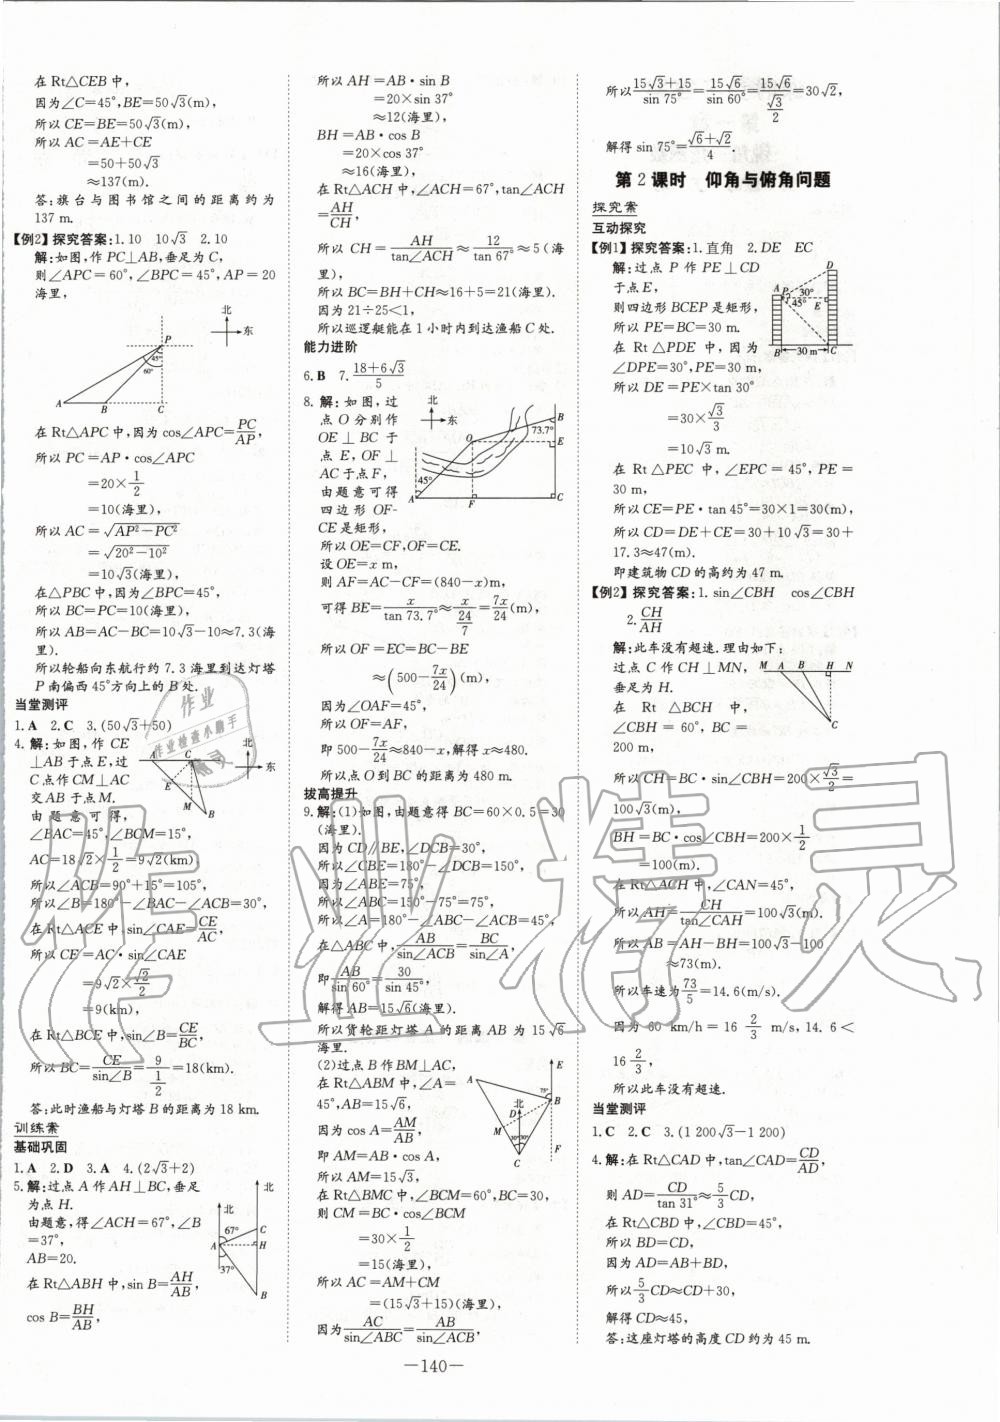 在 Rt△CEB 中,
因为∠C=45°,BE=50√3(m),
所以 CE=BE=50√3(m),
所以 AC=AE+CE
=50+50√3
≈137(m).
答:旗台与图书馆之间的距离约为
137 m.
【例2】探究答案:1.10 10√3 2.10
解:如图,作 PC⊥AB,垂足为 C,
则∠APC=60°,∠BPC=45°,AP=20
海里,
北
东
P
45°
60°
A B C
在 Rt△APC 中,因为 cos∠APC=PC/AP,
所以 PC=AP·cos∠APC
=20×1/2
=10(海里),
所以 AC=√(AP²-PC²)
=√(20²-10²)
=10√3(海里),
在△PBC 中,因为∠BPC=45°,
所以 BC=PC=10(海里),
所以 AB=AC-BC=10√3-10≈7.3(海
里).
所以轮船向东航行约 7.3 海里到达灯塔
P 南偏西 45°方向上的 B 处.
当堂测评
1.A 2.C 3.(50√3+50)
4.解:如图,作 CE
⊥AB 于点 E,过
C 点作 CM⊥AC
交 AB 于点 M.
由题意可得,
∠BAC=45°,∠BCM=15°,
北
东
A C E M B
AC=18√2×1/2=9√2(km),
所以∠ACB=90°+15°=105°,
所以∠B=180°-∠BAC-∠ACB=30°,
在 Rt△ACE 中,sin∠CAE=CE/AC,
所以 CE=AC·sin∠CAE
=9√2×√2/2
=9(km),
在 Rt△BCE 中,sin∠B=CE/BC,
所以 BC=CE/sin∠B=9/(1/2)=18(km).
答:此时渔船与灯塔 B 的距离为 18 km.
训练案
基础巩固
1.A 2.D 3.A 4.(2√3+2)
5.解:过点 A 作 AH⊥BC,垂足
为点 H.
由题意,得∠ACH=67°,∠B
=37°,
AB=20.
北
北
67°
C
A H
37°
B
在 Rt△ABH 中,sin B=AH/AB,
cos B=BH/AB,
所以 AH=AB·sin B
=20×sin 37°
≈12(海里),
BH=AB·cos B
=20×cos 37°
≈16(海里),
在 Rt△ACH 中,∠ACH=67°,tan∠ACH
=AH/CH,
所以 CH=AH/tan∠ACH≈12/tan 67°≈5(海
里),
所以 BC=BH+CH≈16+5=21(海里).
因为 21÷25<1,
所以巡逻艇能在 1 小时内到达渔船 C 处.
能力进阶
6.B 7.(18+6√3)/5
8.解:如图,过
点 O 分别作
OE⊥BC 于
点 E,OF⊥
AC 于点 F,
由题意可得
四边形 OF-
CE 是矩形,
北
东
B
73.7°
O E
45°
A F C
所以 OE=CF,OF=CE.
设 OE=x m,
则 AF=AC-CF=(840-x)m,
可得 BE=x/tan 73.7°≈x/(24/7)=7x/24(m),
所以 OF=EC=BC-BE
≈(500-7x/24)(m),
因为∠OAF=45°,
所以 OF=AF,
即 500-7x/24≈840-x,解得 x≈480.
所以点 O 到 BC 的距离为 480 m.
拔高提升
9.解:(1)如图,由题意得 BC=60×0.5=30
(海里).
因为 CD∥BE,∠DCB=30°,
所以∠CBE=180°-∠DCB=150°,
因为∠ABE=75°,
所以∠ABC=150°-75°=75°,
所以∠A=180°-∠ABC-∠ACB=45°,
在△ABC 中,AB/sin∠ACB=BC/sin∠A,
即 AB/sin 60°=30/sin 45°,
解得 AB=15√6(海里).
所以货轮距灯塔 A 的距离 AB 为 15√6
海里.
(2)过点 B 作 BM⊥AC,
在 Rt△ABM 中,∠A=
45°,AB=15√6,
因为 cos A=AM/AB,
即 AM=AB·cos A,
所以 AM=15√3,
E
75°
A 北 B
D
M
30° 30°
C F
在 Rt△BMC 中,∠BCM=60°,BC=30,
则 CM=BC·cos∠BCM
=30×1/2
=15(海里),
所以 AC=AM+CM
=(15√3+15)(海里),
因为 AC/sin∠ABC=AB/sin∠ACB,
所以(15√3+15)/sin 75°=15√6/sin 60°=15√6/(√3/2)=30√2,
解得 sin 75°=(√6+√2)/4.
第 2 课时 仰角与俯角问题
探究案
互动探究
【例1】探究答案:1.直角 2.DE EC
解:过点 P 作 PE⊥CD
于点 E,
则四边形 BCEP 是矩形,
所以 PE=BC=30 m.
在 Rt△PDE 中,因为
∠DPE=30°,PE=30 m,
D
A P 30° E
45°
B 30 m C
所以 DE=PE×tan 30°
=30×√3/3
=10√3 m.
在 Rt△PEC 中,∠EPC=45°,PE=
30 m,
所以 CE=PE·tan 45°=30×1=30(m),
所以 CD=DE+CE=30+10√3=30+
17.3≈47(m).
即建筑物 CD 的高约为 47 m.
【例2】探究答案:1.sin∠CBH cos∠CBH
2.CH/AH
解:此车没有超速.理由如下:
过点 C 作 CH⊥MN,
垂足为 H.
在 Rt△BCH 中,
∠CBH=60°,BC=
200 m,
M A B H N
C
所以 CH=BC·sin∠CBH=200×√3/2=
100√3(m),
BH=BC·cos∠CBH=200×1/2
=100(m).
在 Rt△ACH 中,∠CAN=45°,
所以 AH=CH/tan∠CAH=100√3(m).
所以 AB=AH-BH=100√3-100
≈73(m).
所以车速为73/5=14.6(m/s).
因为 60 km/h=16 2/3 m/s,14.6<
16 2/3,
所以此车没有超速.
当堂测评
1.C 2.C 3.(1 200√3-1 200)
4.解:在 Rt△CAD 中,tan∠CAD=CD/AD,
则 AD=CD/tan 31°≈5/3CD,
在 Rt△CBD 中,∠CBD=45°,
所以 BD=CD,
因为 AD=AB+BD,
所以 5/3CD≈CD+30,
解得 CD≈45,
答:这座灯塔的高度 CD 约为 45 m.
—140—
作业精灵